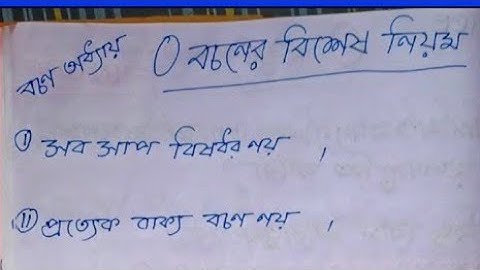 বচন অধ্যায়
বচনের বিশেষ নিয়ম
I সব সাপ বিষধর নয় ,
II প্রত্যেক বাক্য বচন নয় ,